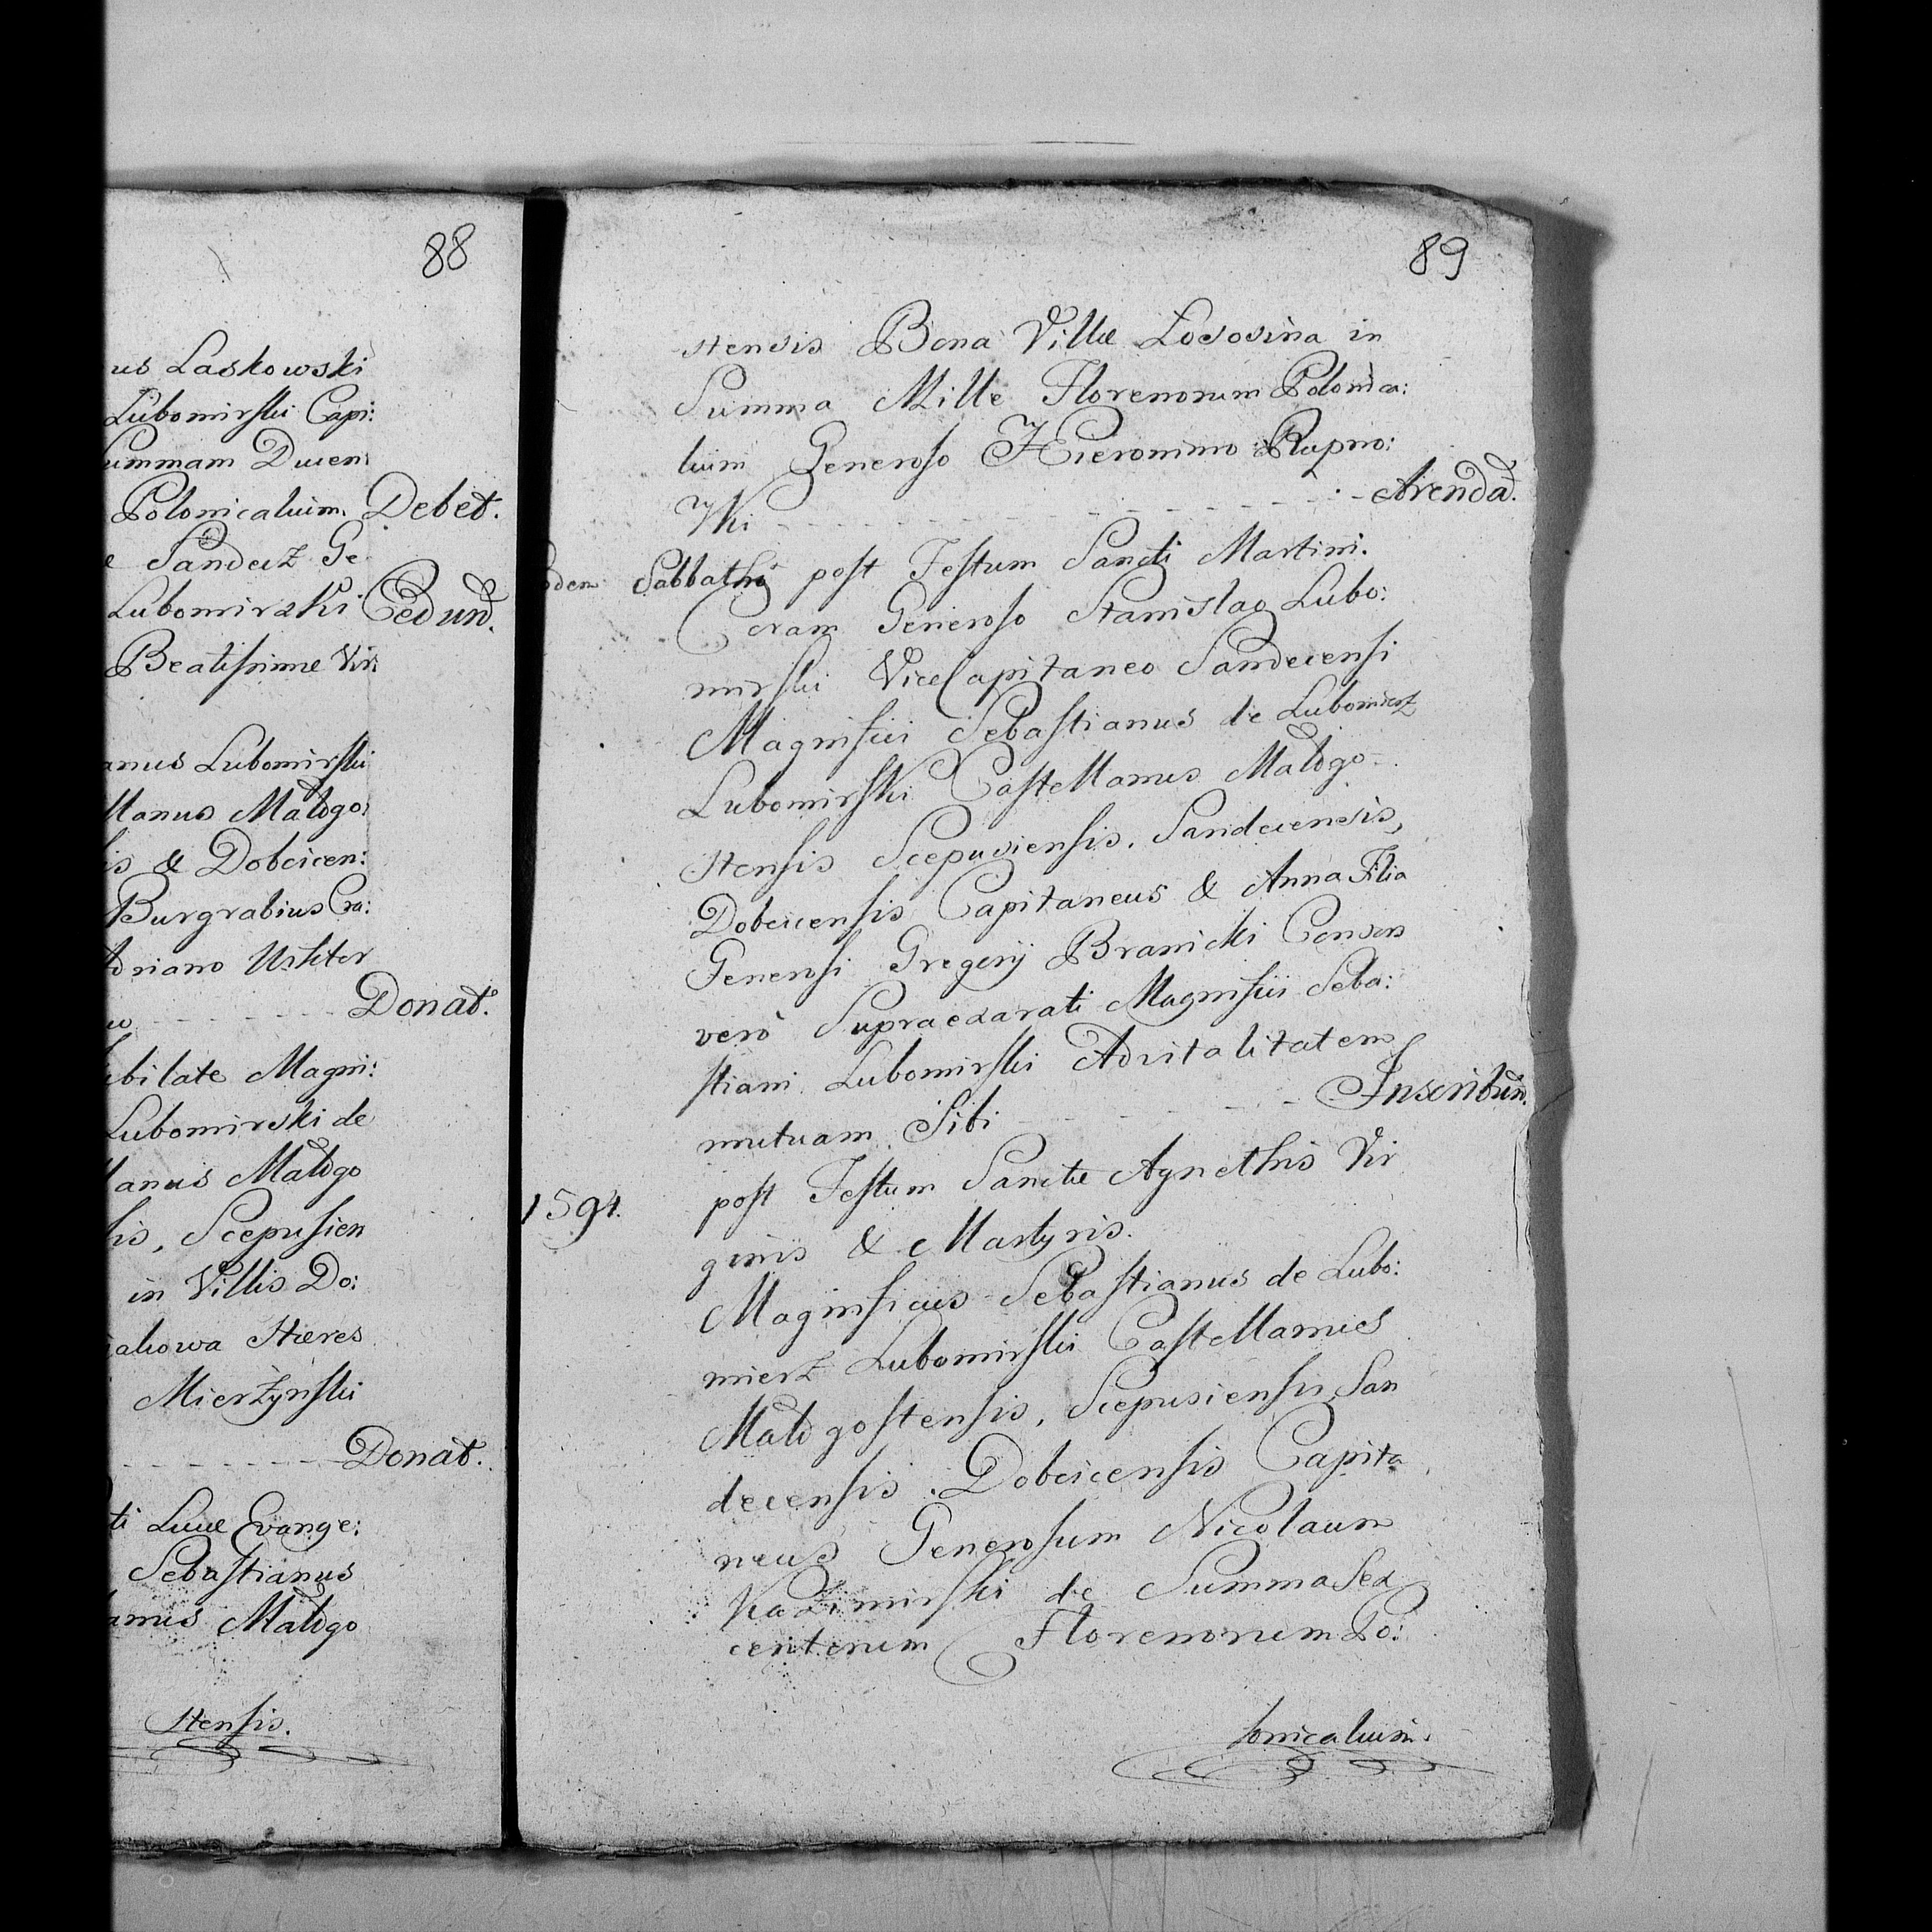 88
us Laskowski
Lubomirski Capi:
ummam Ducen
Polonicalium. Debet.
e Sandecz Ge
Lubomirski Cedund.
Beatissime Vir:
anus Lubomirski
llanus Malogo
is & Dobcicen:
Burgrabius Cra:
Donat.
ubilate Magni:
Lubomirski de
llanus Malogo
sis, Scepusien
in Villis Do:
Hæres
Mierzynski
Donat.
ti Lucæ Evange:
Sebastianus
lanus Malogo
stensis.
89
stensis Bona Villæ Lososina in
Summa Mille Florenorum Polonica:
lium Generoso Hieronimo Rupno:
wski - - - Arendat.
dem Sabbatho post Festum Sancti Martini.
Coram Generoso Stanislao Lubo:
mirski ViceCapitaneo Sandecensi
Magnifici Sebastianus de Lubomierz
Lubomirski Castellanus Malogo-
stensis Scepusiensis, Sandecensis,
Dobcicensis Capitaneus & Anna Filia
Generosi Gregorij Branicki Consors
verò Supraexarati Magnifici Seba:
stiani Lubomirski Advitalitatem
mutuam Sibi - - - Inscribun.
1594. post Festum Sanctæ Agnethis Vir
ginis & Martyris.
Magnificus Sebastianus de Lubo:
mierz Lubomirski Castellanus
Malogostensis, Scepusiensis, San
decensis, Dobcicensis Capita
neus Generosum Nicolaum
Kazimirski de Summa Sex
centorum Florenorum Po:
lonicalium.